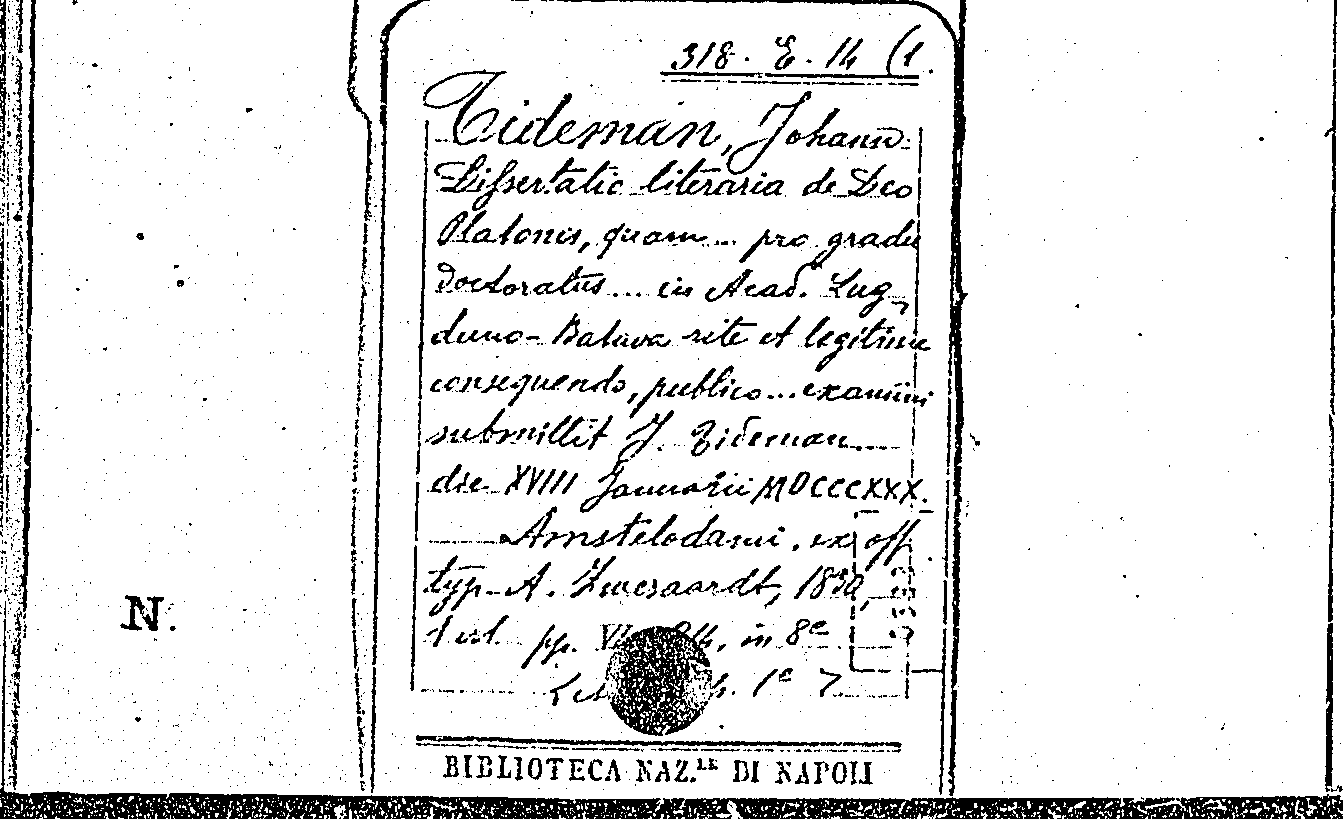 318. E. 14 (1.
Tideman, Johann
Dissertatio literaria de Deo
Platonis, quam... pro gradu
doctoratus... in Acad. Lug
duno-Batava rite et legitime
consequendo, publico... examini
submittit J. Tideman
die XVIII Januarii MDCCCXXX.
Amstelodami, ex off.
typ. A. Zweesaardt, 1830,
pp. in 8º
1ª 7
N.
BIBLIOTECA NAZ.LE DI NAPOLI